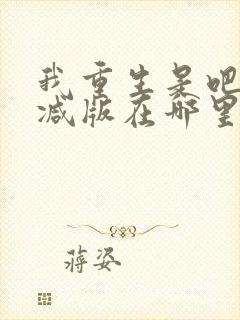 我重生是吧
减版在哪里
蒋姿